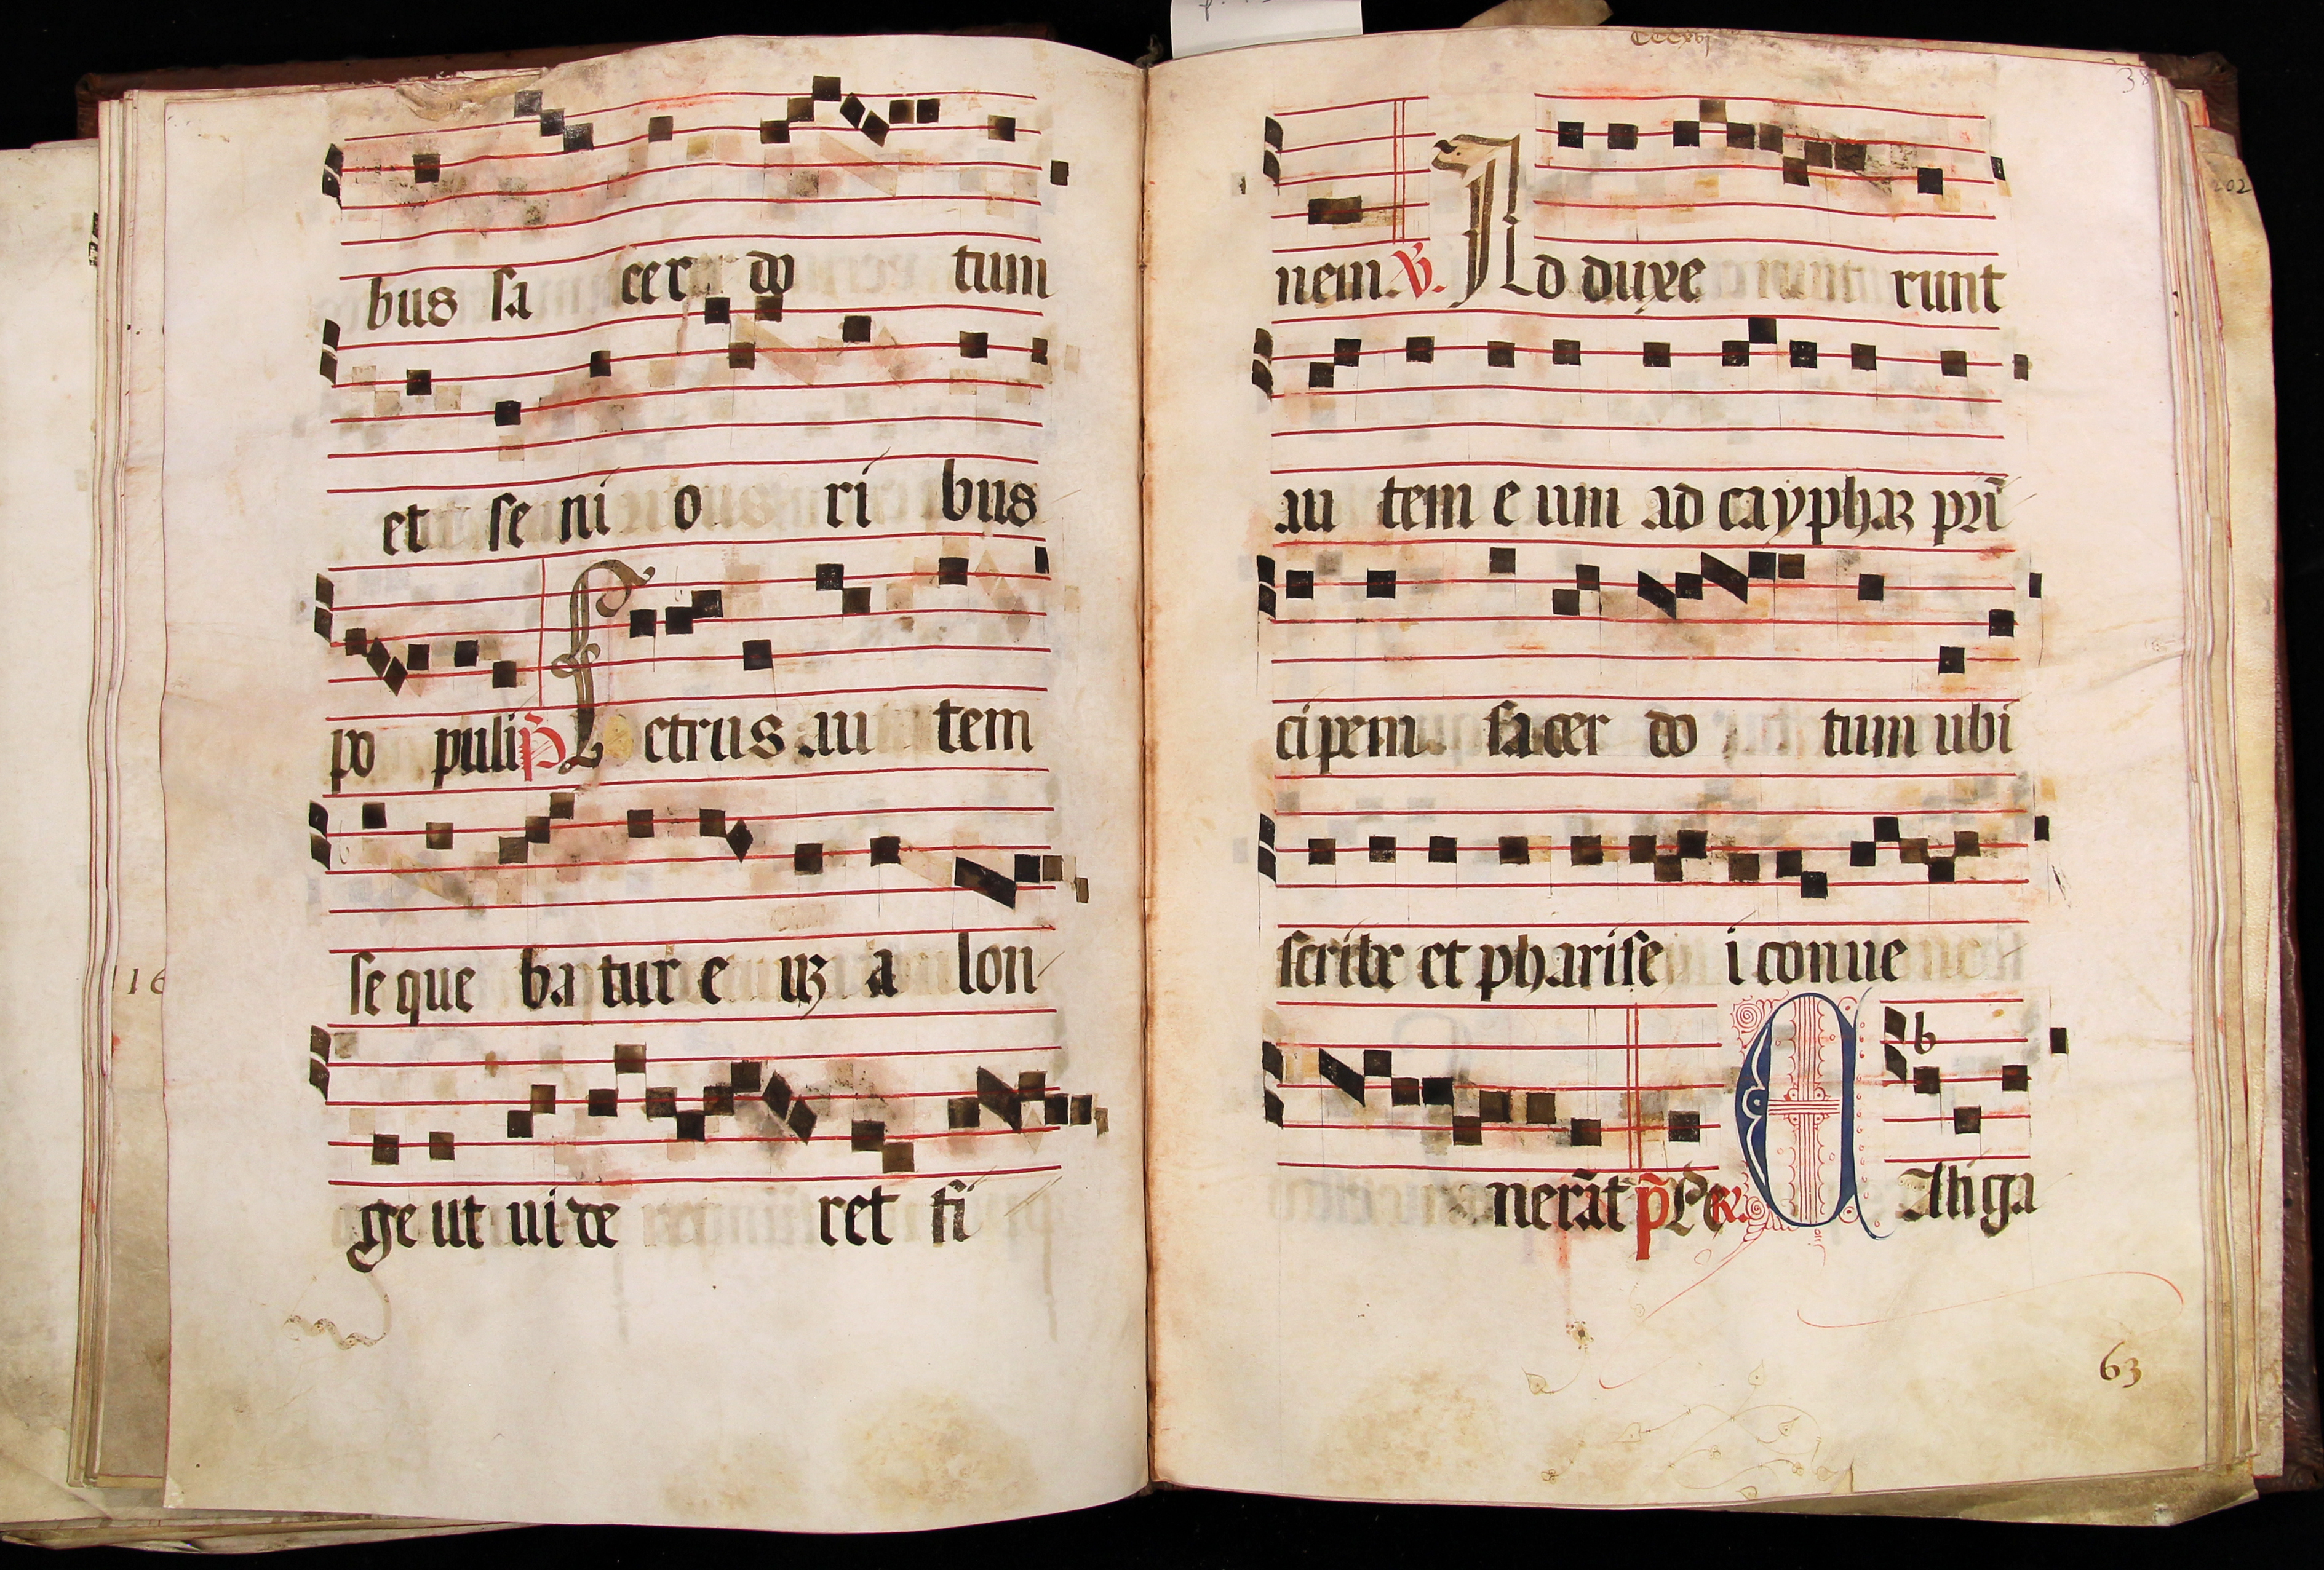 bus sa cer do tum
et se ni o ri bus
po puli p̃ Petrus au tem
se que ba tur e uȝ a lon
ge ut ui de ret fi
116
CCCxvj
38
nem. ℣. Ad duxe runt
au tem e um ad cayphaȝ pri̅
cipem sacer do tum ubi
scribe et pharise i conue
nerãt p̃ Pe ℟. Astiga
63
202